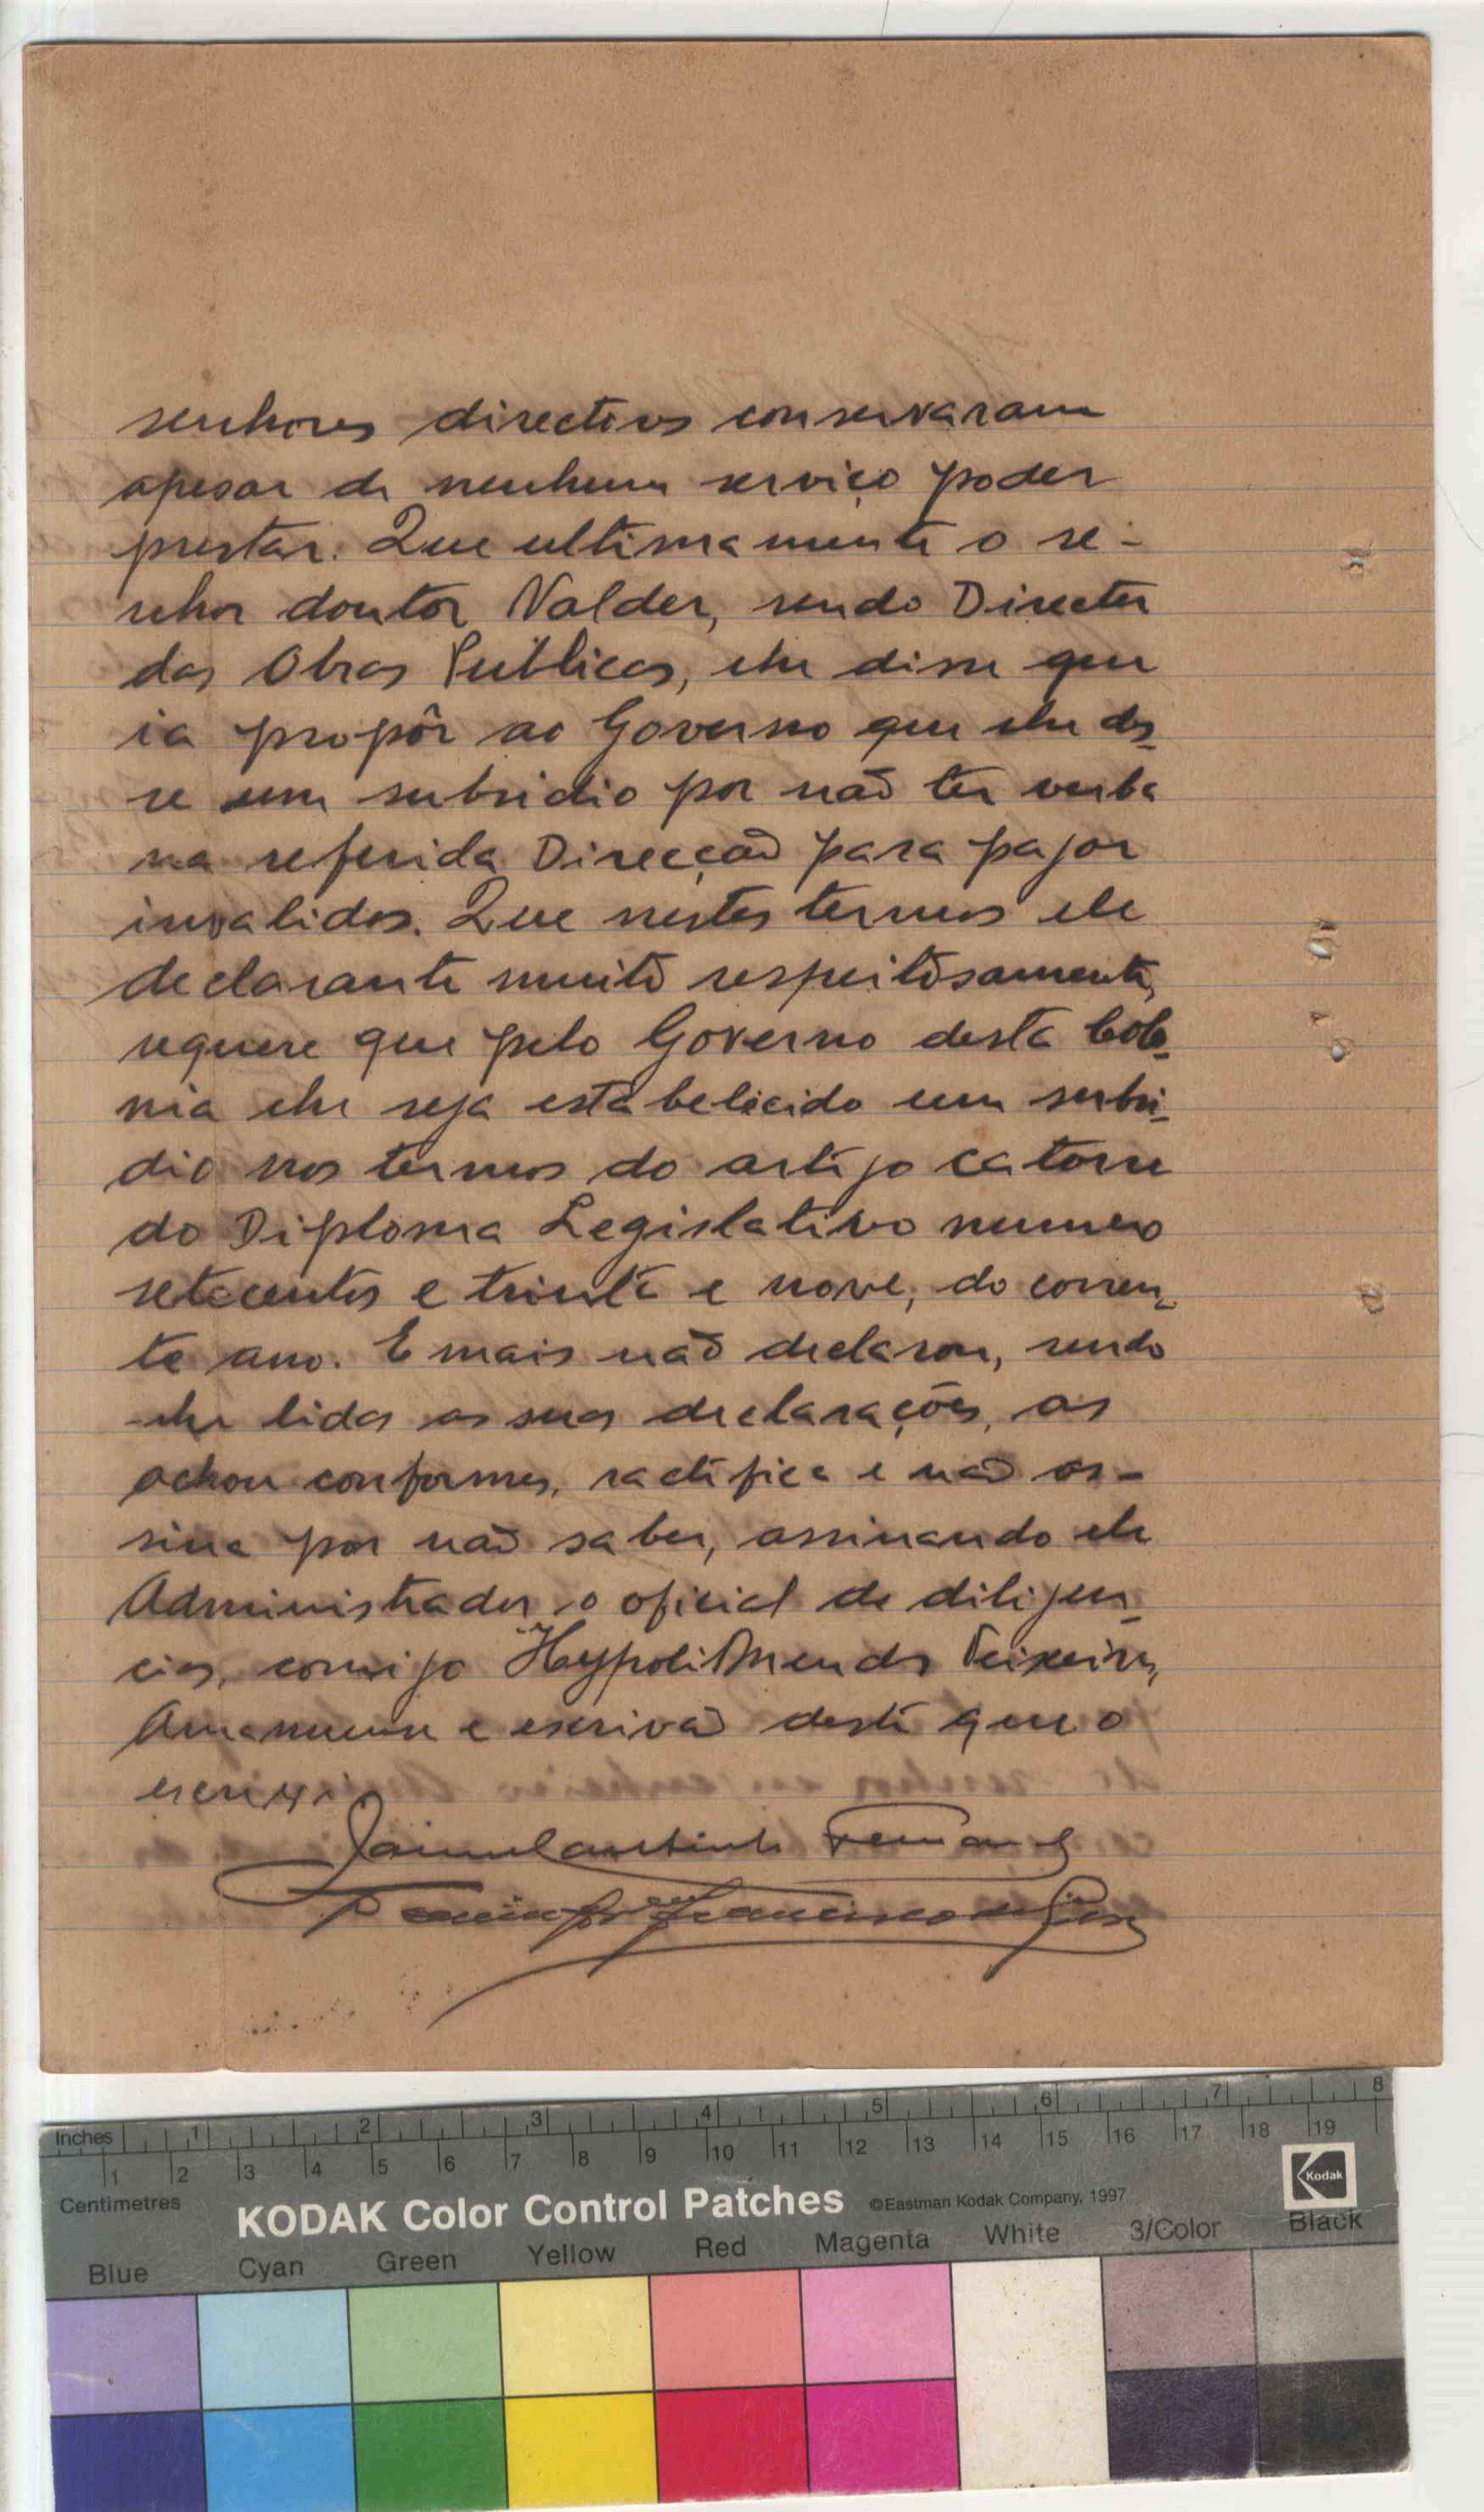 senhores directores conservaram
apesar de nenhum serviço poder
prestar. Que ultimamente o se-
nhor doutor Valder, sendo Director
das Obras Publicas, lhe disse que
ia propôr ao Governo que lhe des-
se um subsidio por não ter verba
na referida Direcção para pagar
invalidos. Que nestes termos ele
declarante muito respeitosamente,
requere que pelo Governo desta Colo-
nia lhe seja estabelecido um subsi-
dio nos termos do artigo catorze
do Diploma Legislativo numero
setecentos e trinta e nove, do corren-
te ano. E mais não declarou, sendo
-lhe lidas as suas declarações, as
achou conformes, ractifica e não as-
sina por não saber, assinando ele
Administrador, o oficial de diligen-
cias, comigo Hypolit Mendes Teixeira,
Amanuense e escrivão deste que o
escrevi
Francisco de
Inches 1 2 3 4 5 6 7 8
1 2 3 4 5 6 7 8 9 10 11 12 13 14 15 16 17 18 19
Centimetres
KODAK Color Control Patches ©Eastman Kodak Company, 1997 Kodak
Blue Cyan Green Yellow Red Magenta White 3/Color Black